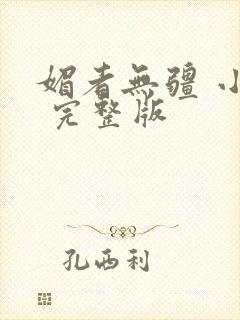 媚者無疆 小
完整版
孔西利